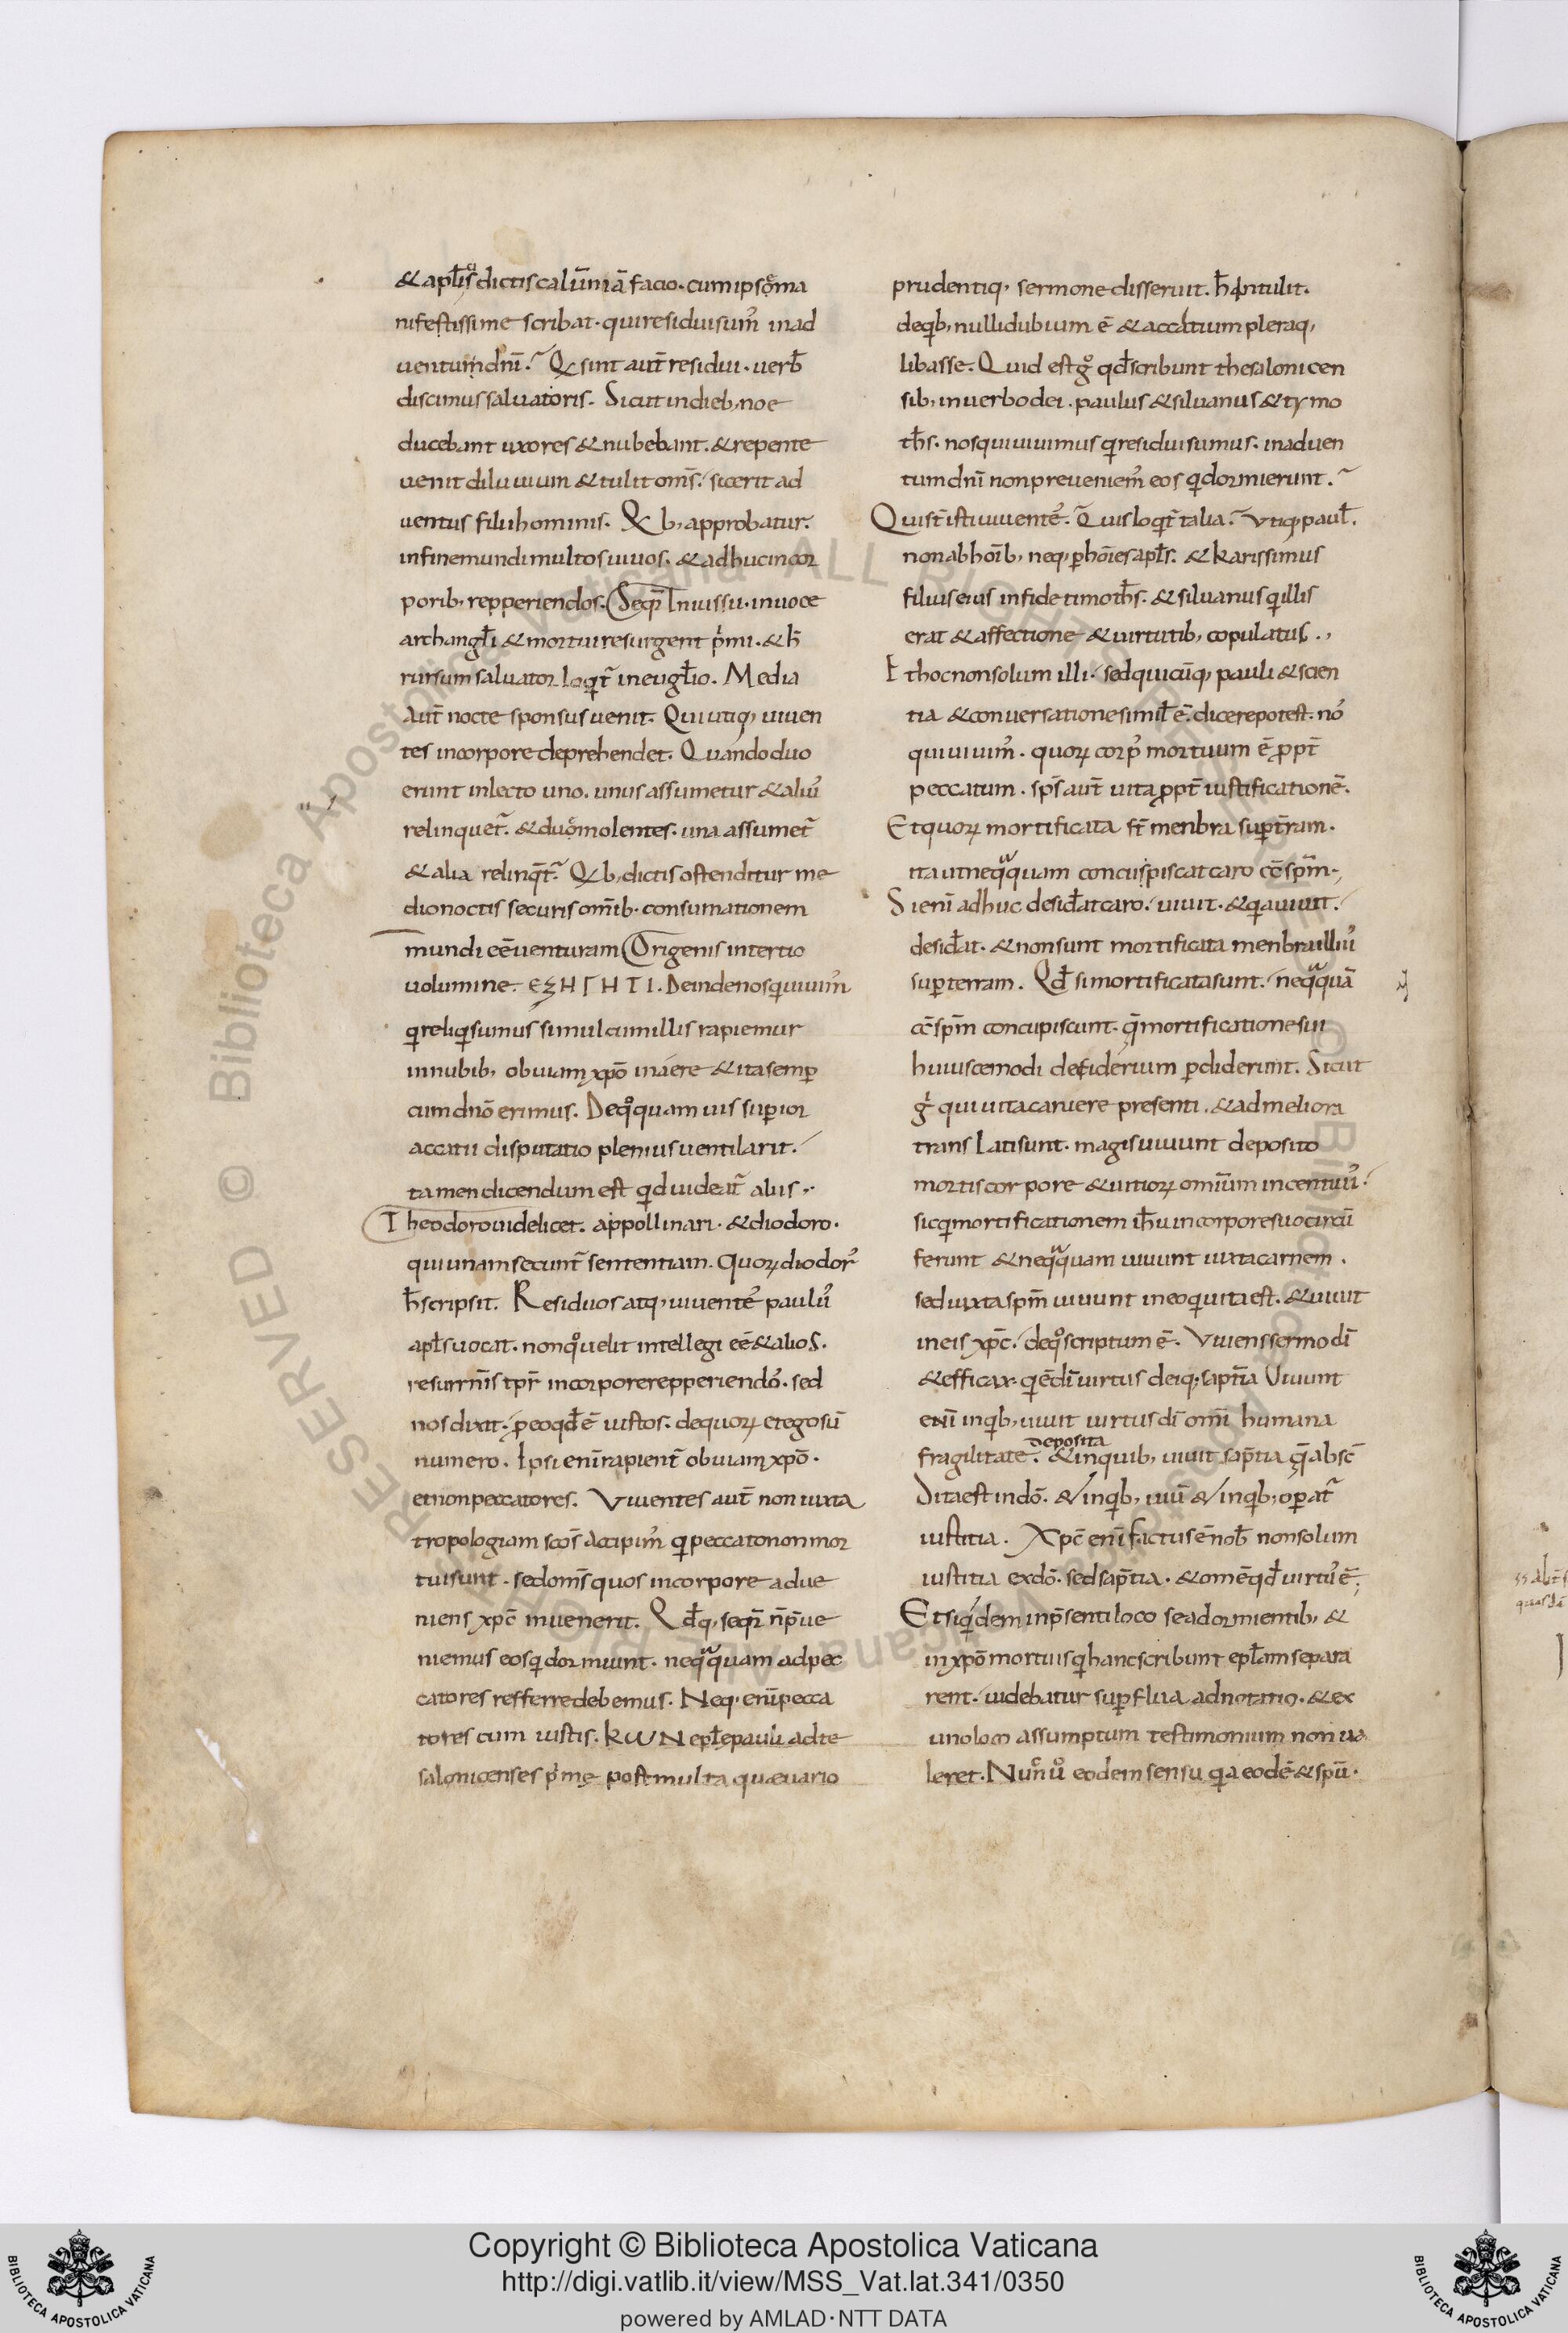 & apl̄is dictis calūniā facio. cum ipse ma
nifestissime scribat. qui residui sum᷒ in ad
uentum dnī. Q& sint aut̄ residui. uerb̄
discimus saluatoris. Sicut in dieb; noe
ducebant uxores & nubebant. & repente
uenit diluuium & tulit om̄s. sic erit ad
uentus filii hominis. Q& b; approbatur.
in fine mundi multos uiuos. & adhuc in cor
porib; repperiendos. Seqr̄ In iussu. in uoce
archangl̄i & mortui resurgent p̍mi. & h̄
rursum saluator loqt̄ in eugl̄io. Media
aut̄ nocte sponsus uenit. Qui utiq; uiuen
tes in corpore deprehendet. Quando duo
erunt in lecto uno. unus assumetur & aliu᷒
relinquet̄. & duę molentes. una assumet̄
& alia relinq̄t̄. Q& b; dictis ostenditur me
dio noctis securis om̄ib. consumationem
mundi eē uenturam Origenis in tertio
uolumine. ЄΞΗΓΗΤΙ. Deinde nos qui uiuim᷒
q reliq sumus simul cum illis rapiemur
in nubib; obuiam xp̄o in aere & ita semp̱
cum dnō erimus. De quo quam uis superior
accatii disputatio plenius uentilarit.
tamen dicendum est qd uideat̄ aliis.
Theodoro uidelicet. appollinari. & diodoro.
qui unam secunt̄ sententiam. Quorꝝ diodor᷒
h̄ scripsit. Residuos atq; uiuente᷒ paulu᷒
apl̄s uocat. non quo uelit intellegi eē & alios.
resurrn̄is tpr̄ in corpore repperiendo᷒. sed
nos dixit. p eo qd̄ ē iustos. de quorꝝ et ego sū
numero. Ipsi enī rapient̄ obuiam xp̄o.
et non peccatores. Viuentes aut̄ non iuxta
tropologiam scōs accipim᷒ q peccato non mor
tui sunt. sed om̄s quos in corpore adue
niens xpc̄ inuenerit. Qd̄q; seqr̄ n̄ p̄ue
niemus eos q dormiunt. neqquam ad pec
catores refferre debemus. Neq; enī pecca
tores cum iustis. kωN epl̄ę pauli ad te
salonicenses p̍mę post multa quæ uario
prudentiq; sermone disseruit. h̄ intulit.
de qb; nulli dubium ē & accatium pleraq;
libasse. Quid est g̊ qd̄ scribunt thesalonicen
sib; in uerbo dei. paulus & siluanus & tymo
th̄s. nos qui uiuimus q residui sumus. in aduen
tum dnī non preueniem᷒ eos q dormierunt.
Qui st̄ isti uiuente᷒. Quis loqt̄ talia. Vtiq; paul̄.
non ab hoīb; neq; p hoīes apl̄s. & karissimus
filius eius in fide timoth̄s. & siluanus q illis
erat & affectione & uirtutib; copulatus.,
Et hoc non solum illi. sed quicūq; pauli & scien
tia & conuersatione simil̄ ē. dicere potest. no᷒
qui uiuim᷒. quorꝝ corp᷒ mortuum ē ppt̄
peccatum. sps̄ aut̄ uita ppt̄ iustificationē.
Et quorꝝ mortificata st̄ menbra sup̱ t̄ram.
ita ut neqquam concupiscat caro cc̄ spm̄.,
Si enī adhuc desid̄at caro. uiuit. & q a uiuit.
desid̄at. & non sunt mortificata menbra illiu᷒
sup̱ terram. Qd̄ si mortificata sunt. neqquā
cc̄ spm̄ concupiscunt. q̄ mortificatione sui
huiuscemodi desiderium p̱diderunt. Sicut
g̍ qui uita caruere presenti. & ad meliora
translati sunt. magis uiuunt deposito
mortis corpore & uitiorꝝ omnium incentiuu᷒.
sic q mortificationem ih̄u in corpore suo circū
ferunt & neqquam uiuunt iuxta carnem.
sed iuxta spm̄ uiuunt in eo q uita est. & uiuit
in eis xpc̄. de quo scriptum ē. Viuens sermo dī
& efficax. q ē dī uirtus deiq; sapt̄ia Viuunt
enī in qb; uiuit uirtus dī omī humana
deposita
fragilitate. & in quib; uiuit sapt̄ia q̄ absc̄
Dita est in dō. & in qb; uiū & in qb; op̱at̄
iustitia. Xpc̄ enī factus ē nob̄ non solum
iustitia ex dō. sed sapt̄ia. & om̄e qd̄ uirtu᷒ ē.
Et siq̍dem in p̄senti loco se a dormientib; &
in xp̄o mortuis q hanc scribunt epl̄am separa
rent. uidebatur sup̱flua adnotatio. & ex
uno loco assumptum testimonium non ua
leret. Nunc uo eodem sensu q a eodē & spū.
Copyright © Biblioteca Apostolica Vaticana
http://digi.vatlib.it/view/MSS_Vat.lat.341/0350
powered by AMLAD·NTT DATA